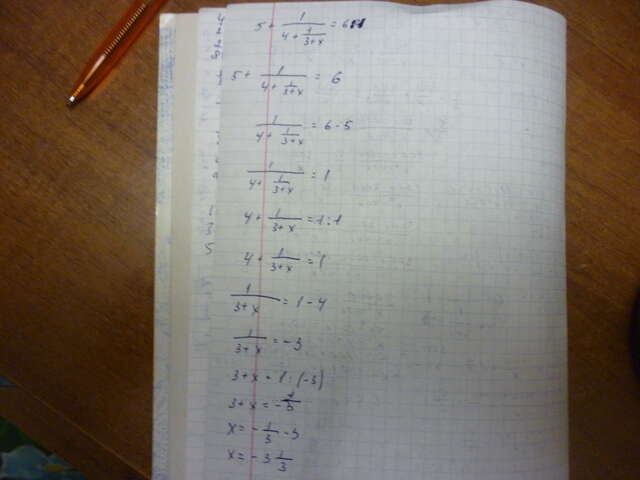 5 + 1/(4 + 1/(3+x)) = 6
5 + 1/(4 + 1/(3+x)) = 6
1/(4 + 1/(3+x)) = 6 - 5
1/(4 + 1/(3+x)) = 1
4 + 1/(3+x) = 1:1
4 + 1/(3+x) = 1
1/(3+x) = 1 - 4
1/(3+x) = -3
3+x = 1:(-3)
3+x = -1/3
x = -1/3 - 3
x = -3 1/3